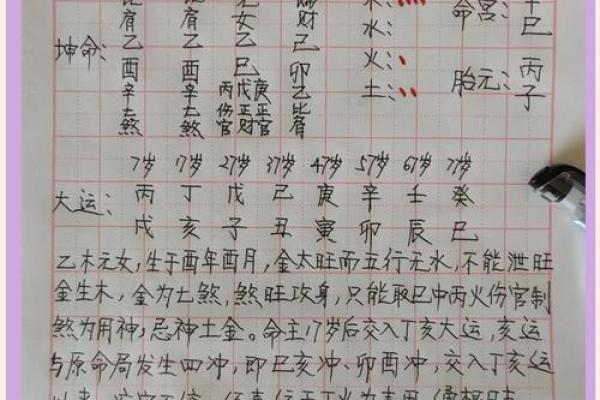 肩 肩 元女 财 木: 命宫: 辛巳
坤命: 乙 乙 乙 己 水:
酉 酉 巳 卯 火: 胎元: 丙子
辛 辛 丙戊庚 乙 土:
七煞 七煞 伤官 正财 正官 比肩
7岁 17岁 27岁 37岁 47岁 57岁 67岁 77岁
大运: 丙 丁 戊 己 庚 辛 壬 癸
戌 亥 子 丑 寅 卯 辰 巳
乙木元女,生于酉年酉月,金太旺而五行无水,不能泄旺
金生木,金为七煞,煞旺攻身,只能取巳中丙火伤官制
煞为用神,忌神土金。命主17岁后交入丁亥大运,亥运
与原命局发生四冲,即巳亥冲、卯酉冲,交入丁亥运
以来